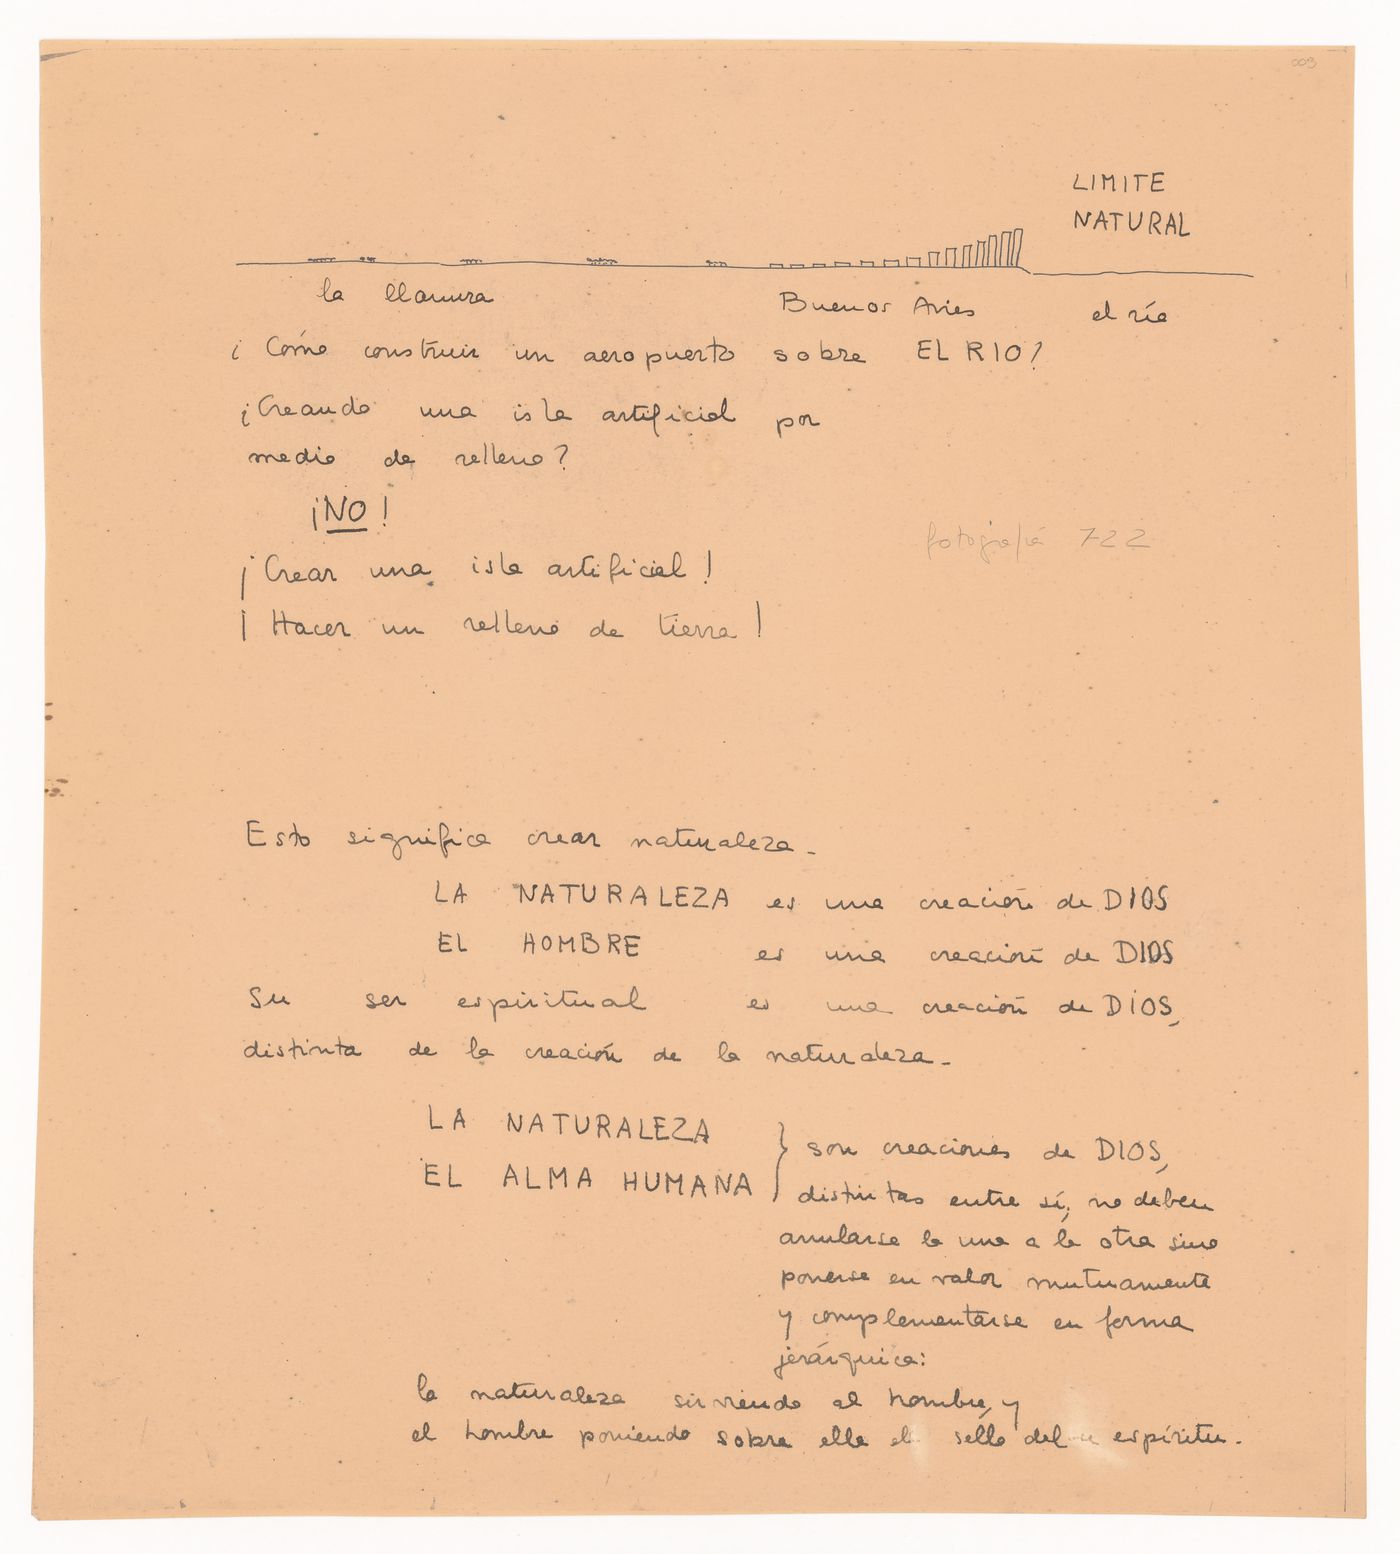 003
LIMITE
NATURAL
la llanura Buenos Aires el río
¿Cómo construir un aeropuerto sobre EL RIO?
¡Creando una isla artificial por
medio de relleno?
¡NO!
fotografía 722
¡Crear una isla artificial!
¡Hacer un relleno de tierra!
Esto significa crear naturaleza.
LA NATURALEZA es una creación de DIOS
EL HOMBRE es una creación de DIOS
Su ser espiritual es una creación de DIOS,
distinta de la creación de la naturaleza.
LA NATURALEZA
EL ALMA HUMANA
} son creaciones de DIOS,
distintas entre sí, no deben
anularse la una a la otra sino
ponerse en valor mutuamente
y complementarse en forma
jerárquica:
la naturaleza sirviendo al hombre, y
el hombre poniendo sobre ella el sello del espíritu.